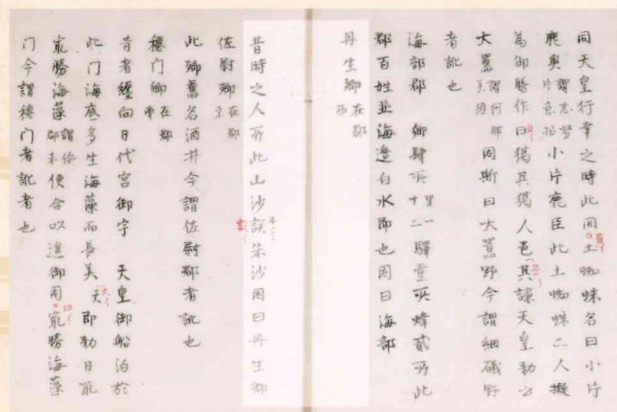 同天皇行幸之時此間土蜘蛛名曰小片
鹿奥謂志努汗意拕小片鹿臣此土蜘蛛二人擬
為御膳作曰獦其獦人邑其謙天皇勅云
大囂謂阿那美須因斯曰大囂野今謂網磯野
者訛也
海部郡 郷肆所里一十二驛壹所烽貳所此
郡百姓並海邊白水郎也因曰海部
丹生郷在郡西
昔時之人所此山沙該朱沙因曰丹生郷
佐尉郷在郡東
此郷舊名酒井今謂佐尉郷者訛也
穂門郷在郡南
昔者纏向日代宮御宇 天皇御船泊於
此門海底多生海藻而長美天即勅曰取
最勝海藻謂保都米便令以進御因最勝海藻
門今謂穂門者訛者也